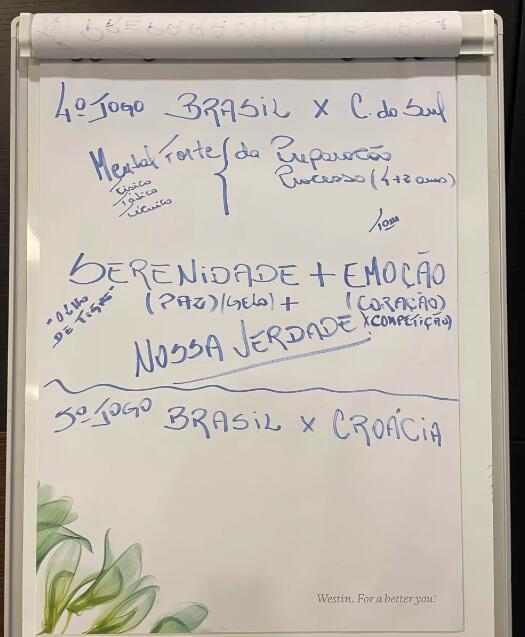 4º JOGO BRASIL X C. do Sul
Mental Forte { da Preparação
Físico
Tático
Técnico
Processo (4+2 anos)
SERENIDADE + EMOÇÃO
"OLHO
DE TIGRE"
(PAZ)/(GELO) + (CORAÇÃO)
X COMPETIÇÃO)
NOSSA VERDADE
5º JOGO BRASIL X CROÁCIA
Westin. For a better you.